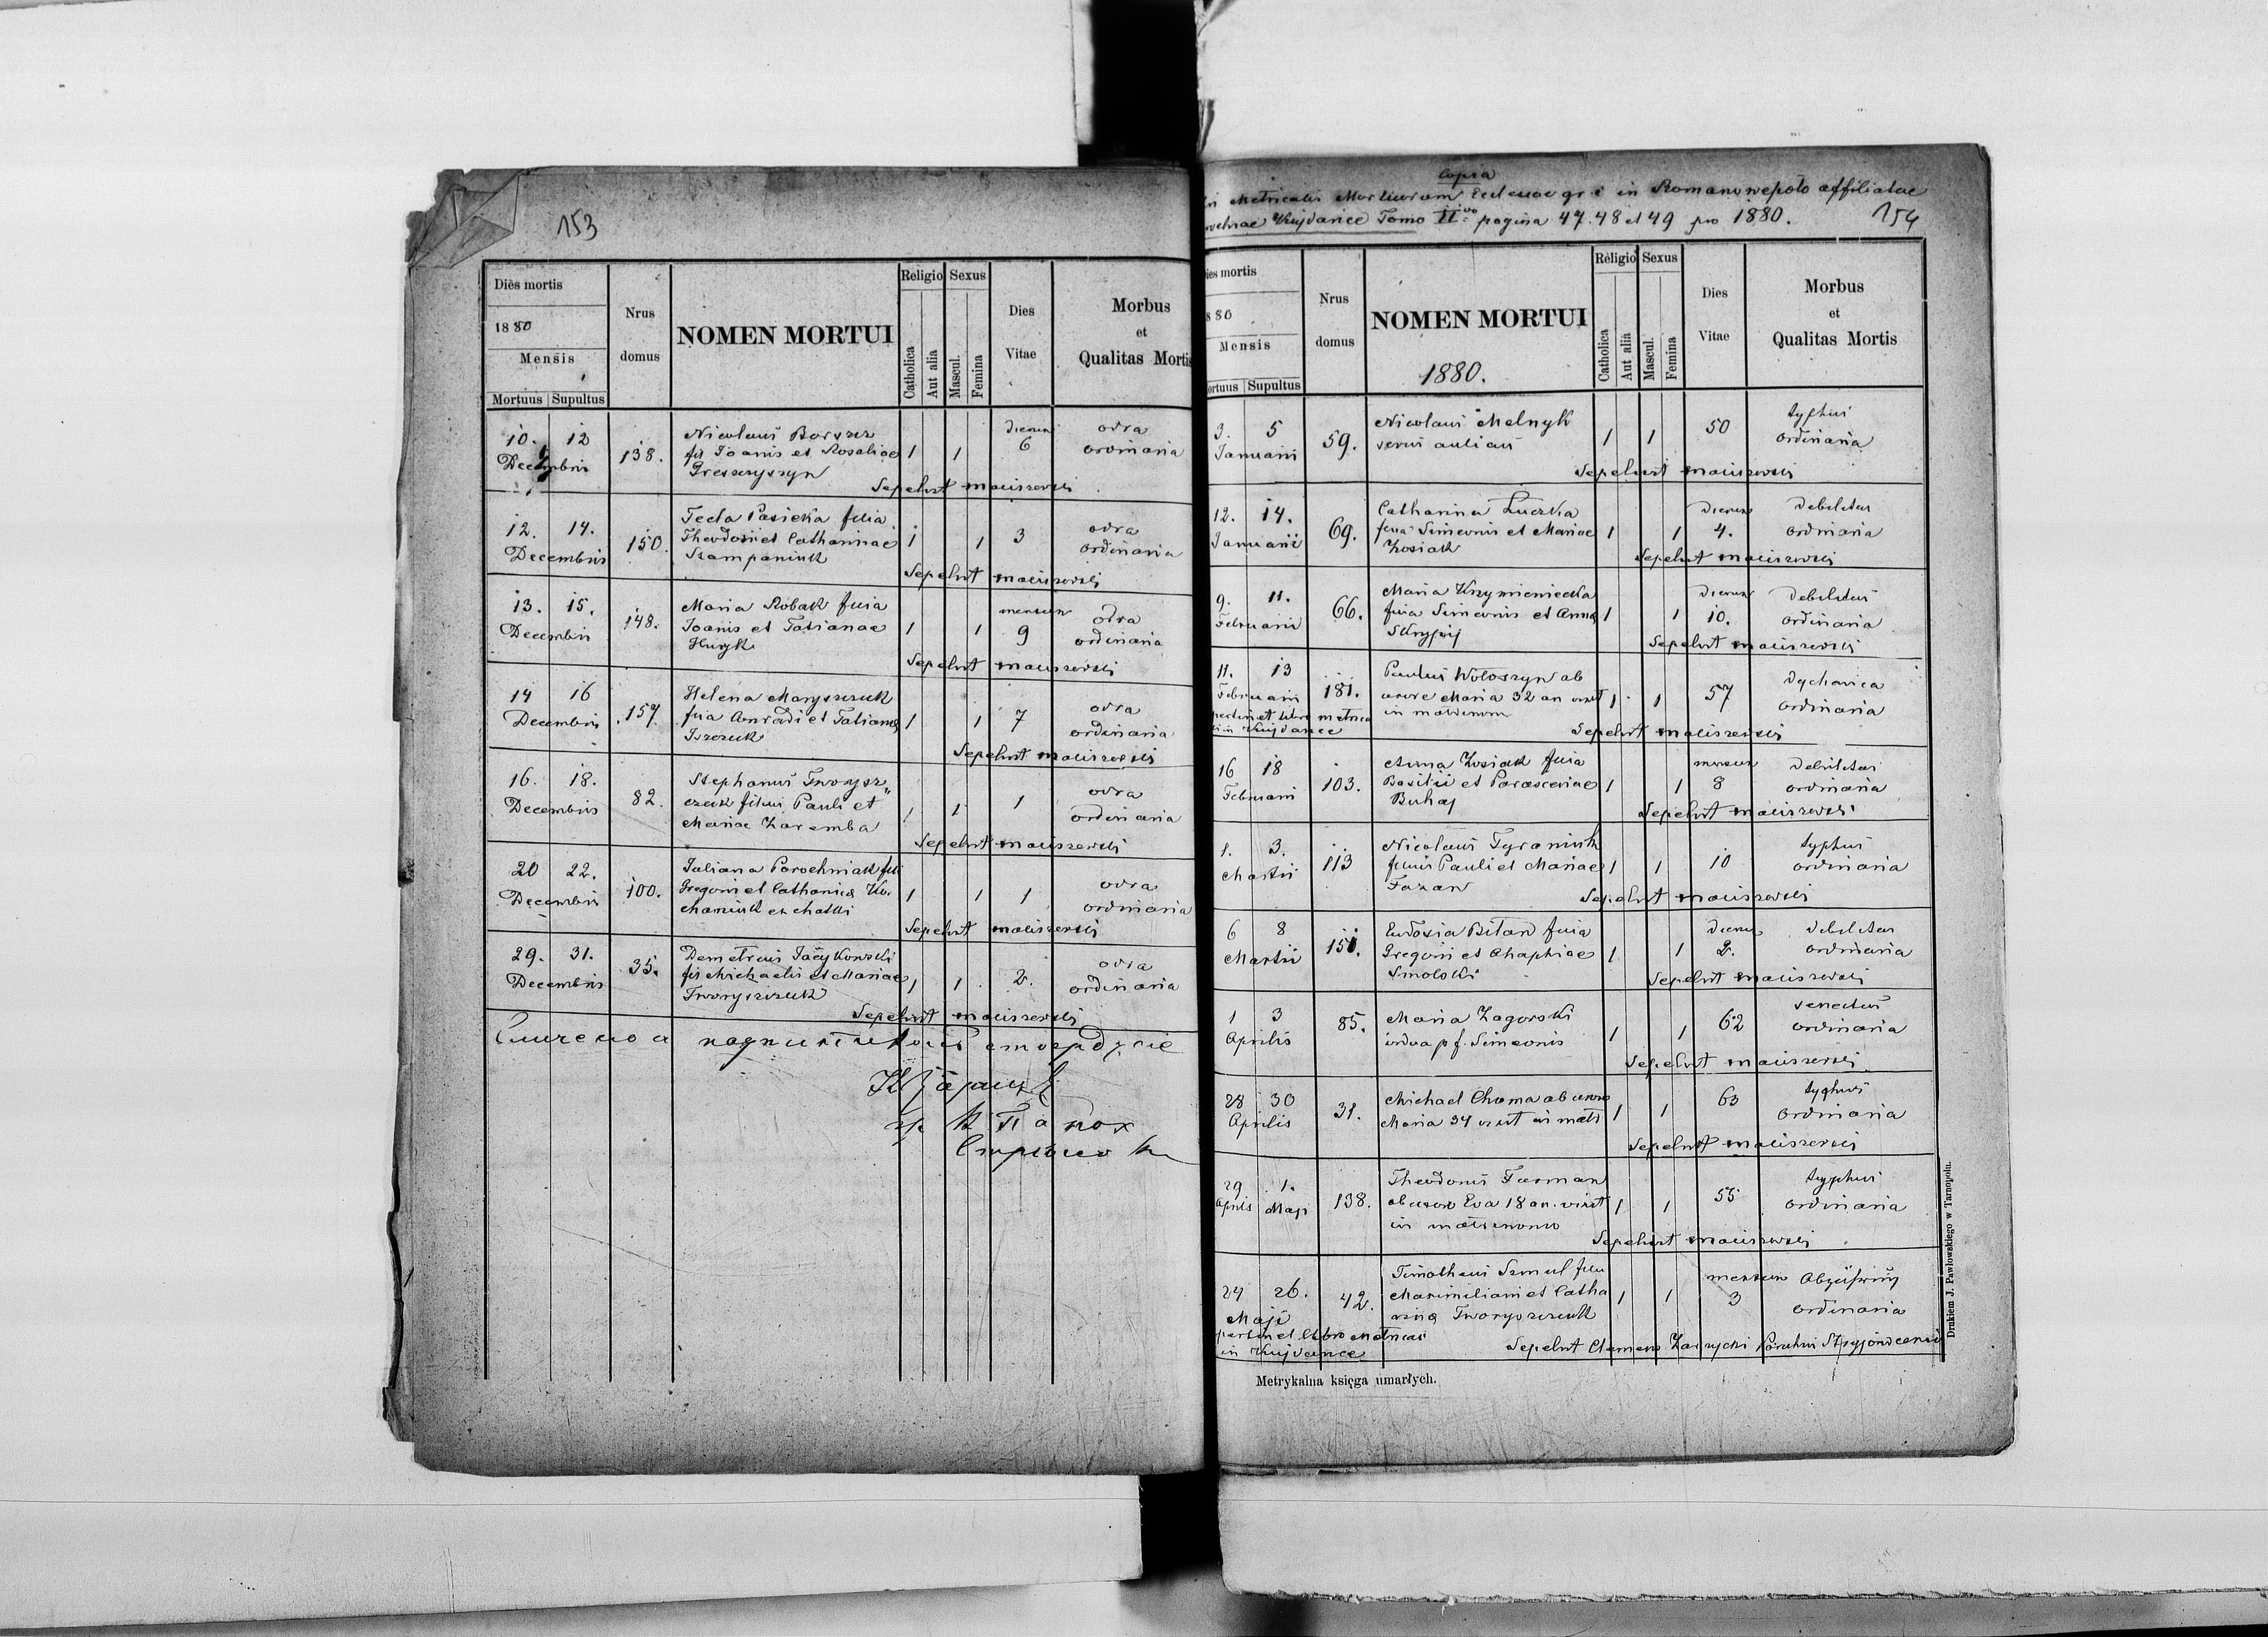 153
Diēs mortis
1880
Mensis
Mortuus Supultus
Nrus
domus
NOMEN MORTUI
Religio
Catholica
Aut alia
Sexus
Mascul.
Femina
Dies
Vitae
Morbus
et
Qualitas Mortis
10. 12 Decembris 138. Nicolaus Barszcz 1 1 dierum 6 odra
fil Joanis et Rosaliae ordinaria
Greszczyszyn
Sepelivit maliszewski
12. 14. Decembris 150. Tecla Pasieka filia 1 1 3 odra
Theodosii et Catharinae ordinaria
Szampaniuk
Sepelivit maliszewski
13. 15. Decembris 148. Maria Robak filia 1 1 mensium 9 odra
Joanis et Tatianae ordinaria
Huzyk
Sepelivit maliszewski
14 16 Decembris 157. Helena Maryszczuk 1 1 7 odra
filia Conradi et Tatianae ordinaria
Iszczuk
Sepelivit maliszewski
16. 18. Decembris 82. Stephanus Tworysz„ 1 1 1 odra
czuk filius Pauli et ordinaria
Mariae Zaremba
Sepelivit maliszewski
20 22. Decembris 100. Juliana Parochniak fil 1 1 1 odra
Gregorii et Catharinae Ko. ordinaria
chaniuk
Sepelivit maliszewski
29. 31. Decembris 35. Demetrius Jaćykowski 1 1 2. odra
fil Michaelis et Mariae ordinaria
Tworyszczuk
Sepelivit maliszewski
Copia
Metricalis Mortuorum Ecclesiae gr. c in Romanowepoło affiliatae
Kujdance Tomo II pagina 47. 48 et 49 pro 1880. 154
Dies mortis
1880
Mensis
Mortuus Supultus
Nrus
domus
NOMEN MORTUI
1880.
Religio
Catholica
Aut alia
Sexus
Mascul.
Femina
Dies
Vitae
Morbus
et
Qualitas Mortis
3. 5 Januarii 59. Nicolaus Melnyk 1 1 50 typhus
ordinaria
Sepelivit maliszewski
12. 14. Januarii 69. Catharina Luczka 1 1 dierum 4. debilitas
filia Simeonis et Mariae ordinaria
Kosiak
Sepelivit maliszewski
9. 11. Februarii 66. Maria Krzymieniecka 1 1 dierum 10. debilitas
filia Simeonis et Anna ordinaria
Skrypij
Sepelivit maliszewski
11. 13 Februarii 181. Paulus Wołoszyn ab 1 1 57 dychavica
uxore Maria 32 an vixit ordinaria
in matrimon
pertinet libro metrica
in Kujdance
Sepelivit maliszewski
16 18 Februarii 103. Anna Kosiak filia 1 1 mensium 8 debilitas
Basilii et Parasceviae ordinaria
Buhaj
Sepelivit maliszewski
1. 3. Martii 113 Nicolaus Tyraniuk 1 1 10 typhus
filius Pauli et Mariae ordinaria
Fazan
Sepelivit maliszewski
6 8 Martii 151. Eudosia Bitan filia 1 1 dierum 2. debilitas
Gregorii et Ahaphiae ordinaria
Smolski
Sepelivit maliszewski
1 3 Aprilis 85. Maria Zagorski 1 1 62 senectus
vidua p f. Simeonis ordinaria
Sepelivit maliszewski
28 30 Aprilis 31. Michael Choma ab uxore 1 1 63 typhus
Maria 34 vixit in matr ordinaria
Sepelivit maliszewski
29 Aprilis 1. Maji 138. Theodorus Furman 1 1 55 typhus
ab uxore Eva 18 an. vixit ordinaria
in matrimonio
Sepelivit maliszewski
24 26. Maji 42. Timotheus Szmul filiu 1 1 mensium 3
Maximiliani et Catha ordinaria
rina Tworyszczuk
pertinet libro Metricae
in Kujdance
Sepelivit Clemens Zarzycki Parochus
Metrykalna księga umarłych.
Drukiem J. Pawłowskiego w Tarnopolu.